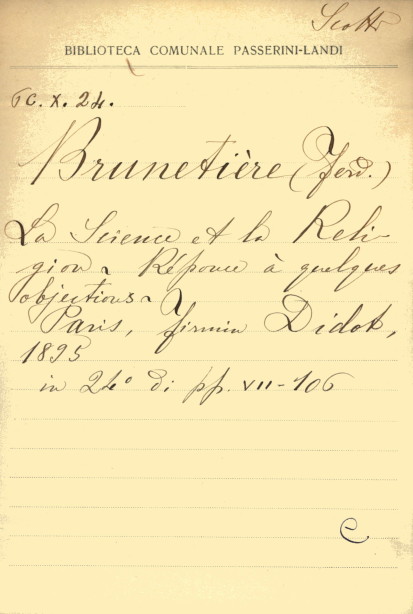 Scotti
BIBLIOTECA COMUNALE PASSERINI-LANDI
6c. X. 24.
Brunetière (Ferd.)
La Science et la Reli-
gion ~ Réponse à quelques
objections ~
Paris, Firmin Didot,
1895
in 24° di pp. VII-106
C